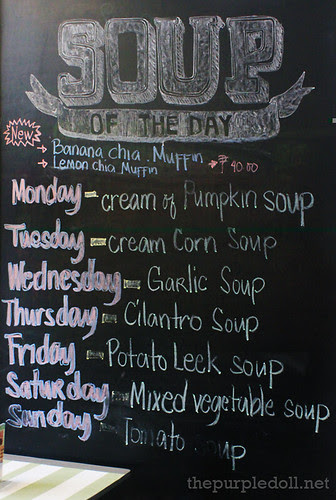 SOUP
OF THE DAY
New
→ Banana chia. Muffin
→ Lemon chia Muffin → ₱ 40.00
Monday - cream of Pumpkin soup
Tuesday - cream Corn Soup
Wednesday - Garlic Soup
Thursday - Cilantro Soup
Friday - Potato Leek soup
Saturday - Mixed vegetable soup
Sunday - Tomato soup
thepurpledoll.net